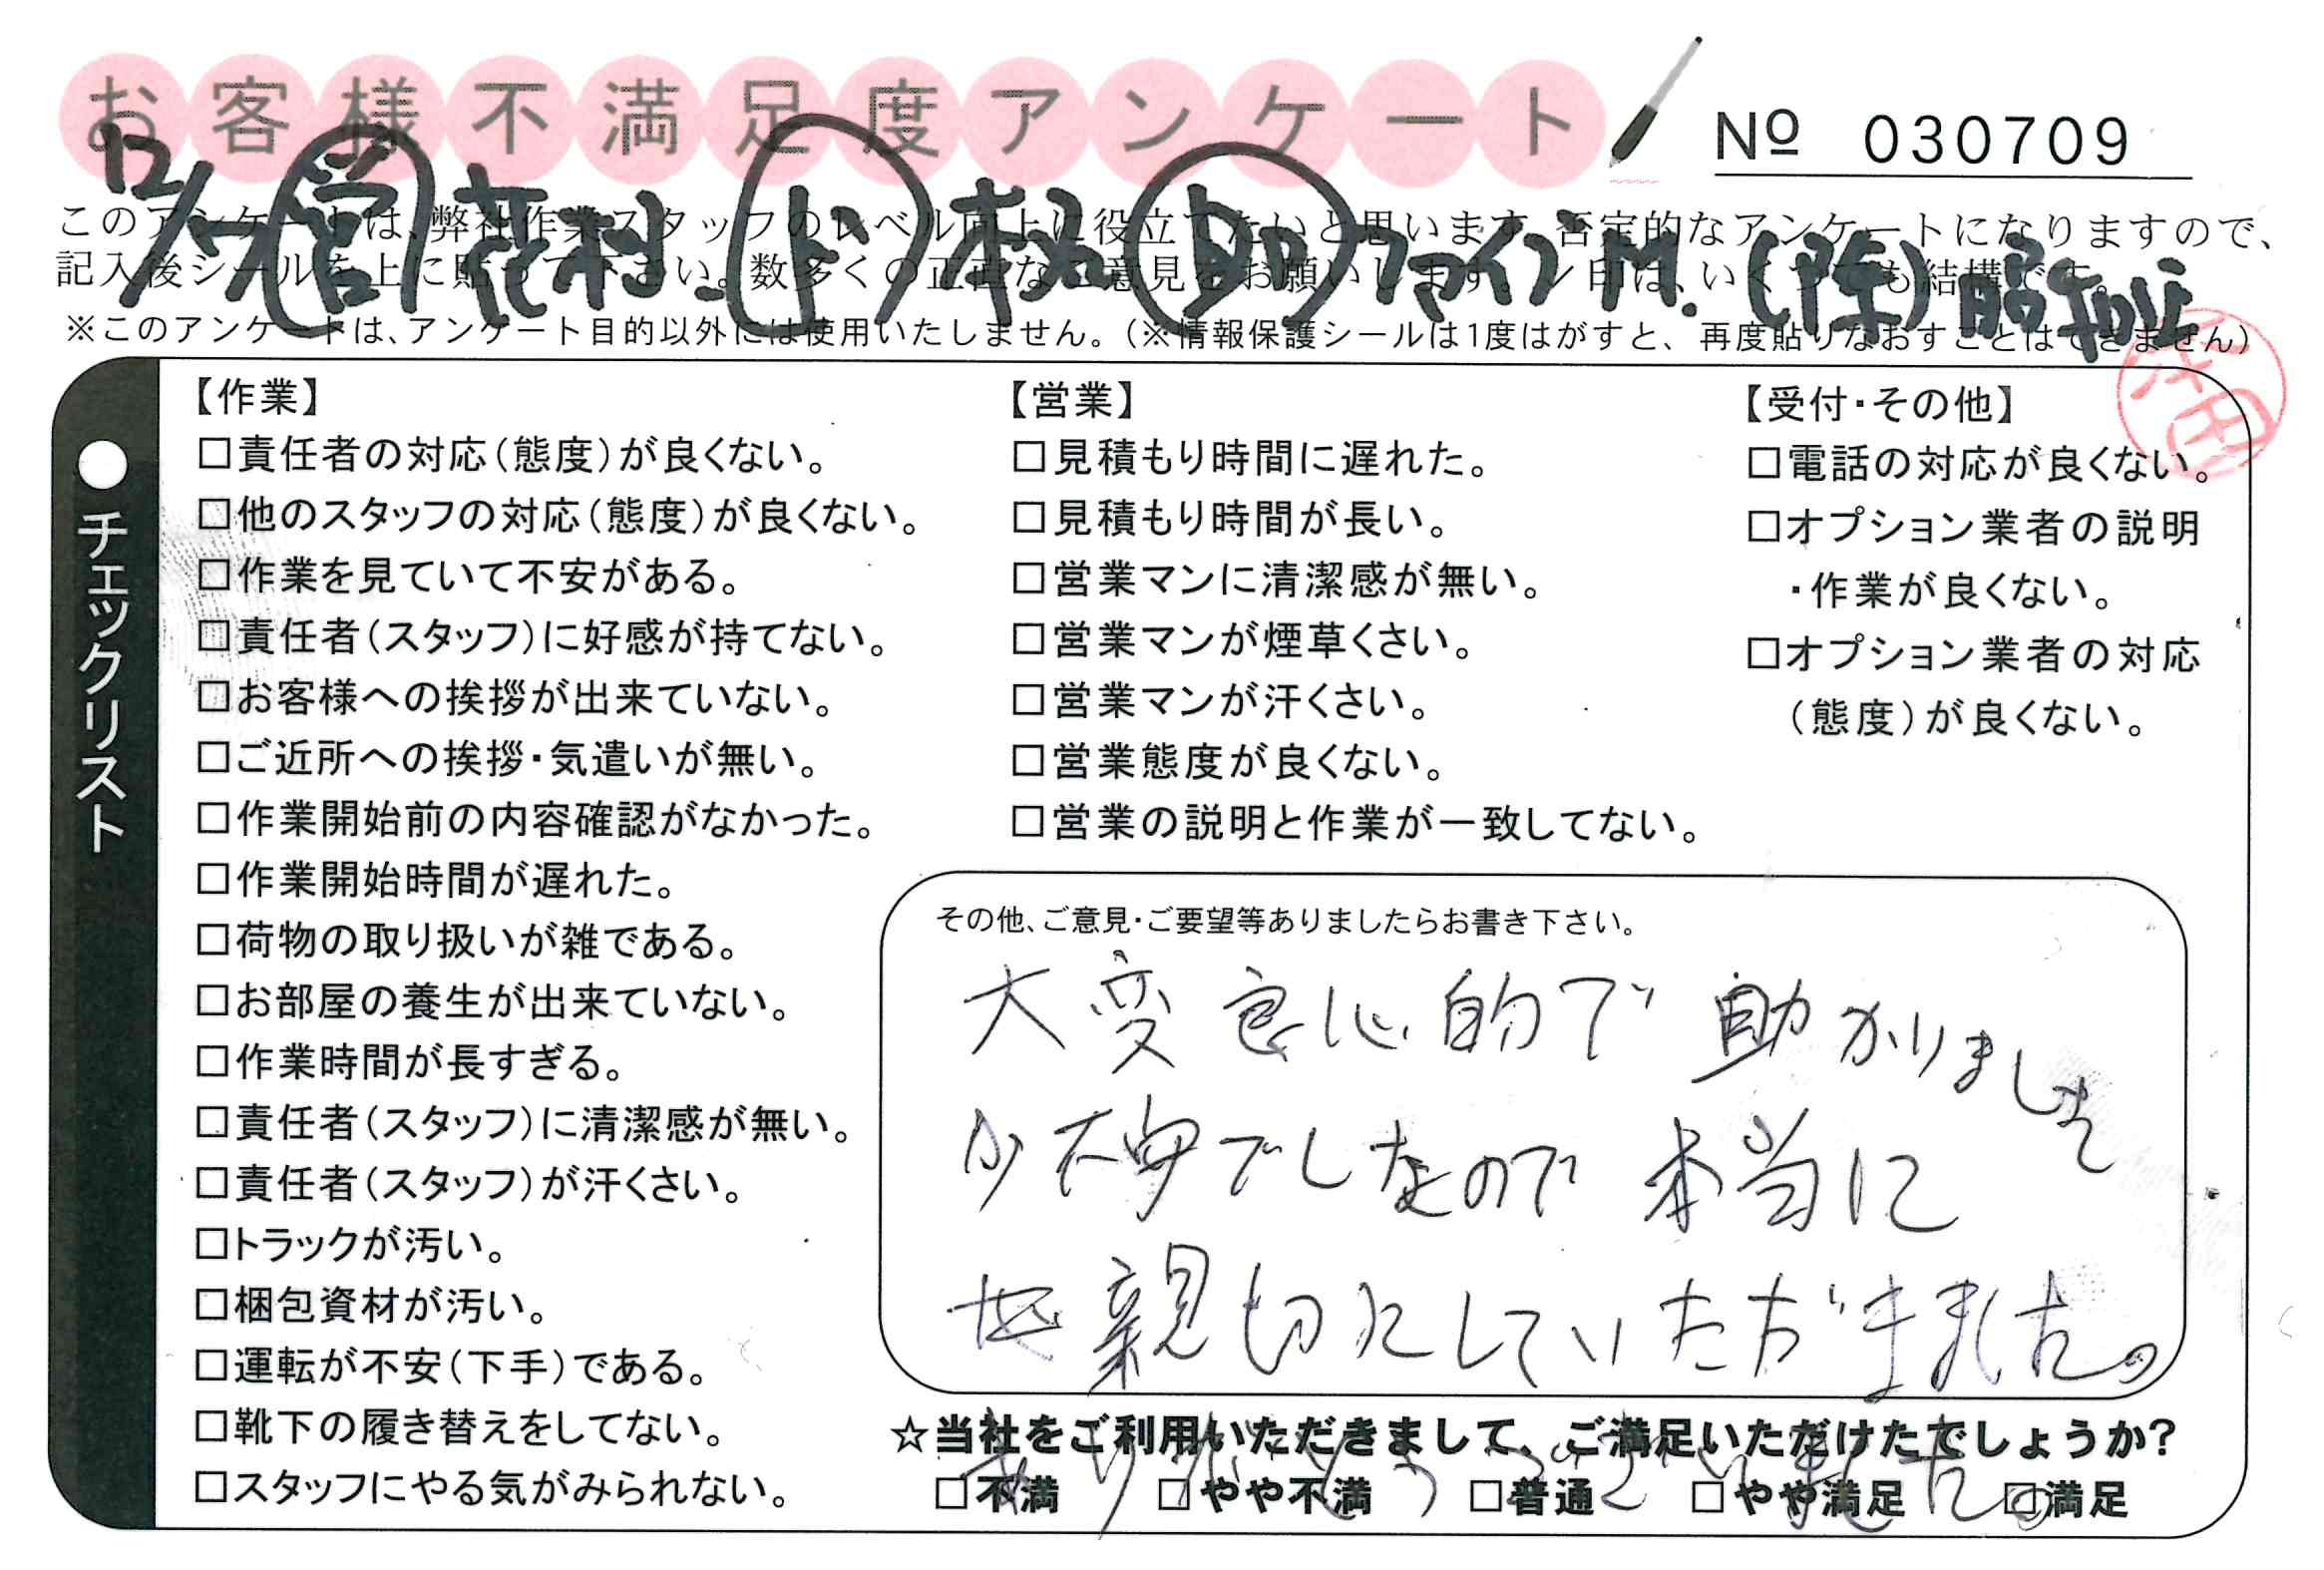 お客様不満足度アンケート
No 030709
12/
営 花村 ト 本松 助 ファインM. (陸)
このアンケートは、弊社作業スタッフのレベル向上に役立てたいと思います。否定的なアンケートになりますので、
記入後シールを上に貼って下さい。数多くの正直なご意見をお願いします。レ印は、いくつでも結構です。
※このアンケートは、アンケート目的以外には使用いたしません。(※情報保護シールは1度はがすと、再度貼りなおすことはできません)
●チェックリスト
【作業】
□責任者の対応(態度)が良くない。
□他のスタッフの対応(態度)が良くない。
□作業を見ていて不安がある。
□責任者(スタッフ)に好感が持てない。
□お客様への挨拶が出来ていない。
□ご近所への挨拶・気遣いが無い。
□作業開始前の内容確認がなかった。
□作業開始時間が遅れた。
□荷物の取り扱いが雑である。
□お部屋の養生が出来ていない。
□作業時間が長すぎる。
□責任者(スタッフ)に清潔感が無い。
□責任者(スタッフ)が汗くさい。
□トラックが汚い。
□梱包資材が汚い。
□運転が不安(下手)である。
□靴下の履き替えをしてない。
□スタッフにやる気がみられない。
【営業】
□見積もり時間に遅れた。
□見積もり時間が長い。
□営業マンに清潔感が無い。
□営業マンが煙草くさい。
□営業マンが汗くさい。
□営業態度が良くない。
□営業の説明と作業が一致してない。
【受付・その他】
□電話の対応が良くない。
□オプション業者の説明
・作業が良くない。
□オプション業者の対応
(態度)が良くない。
その他、ご意見・ご要望等ありましたらお書き下さい。
大変良心的で助かりました
が不安でしたので本当に
親切にしていただきました。
ありがとうございました。
☆当社をご利用いただきまして、ご満足いただけたでしょうか?
□不満 □やや不満 □普通 □やや満足 □満足